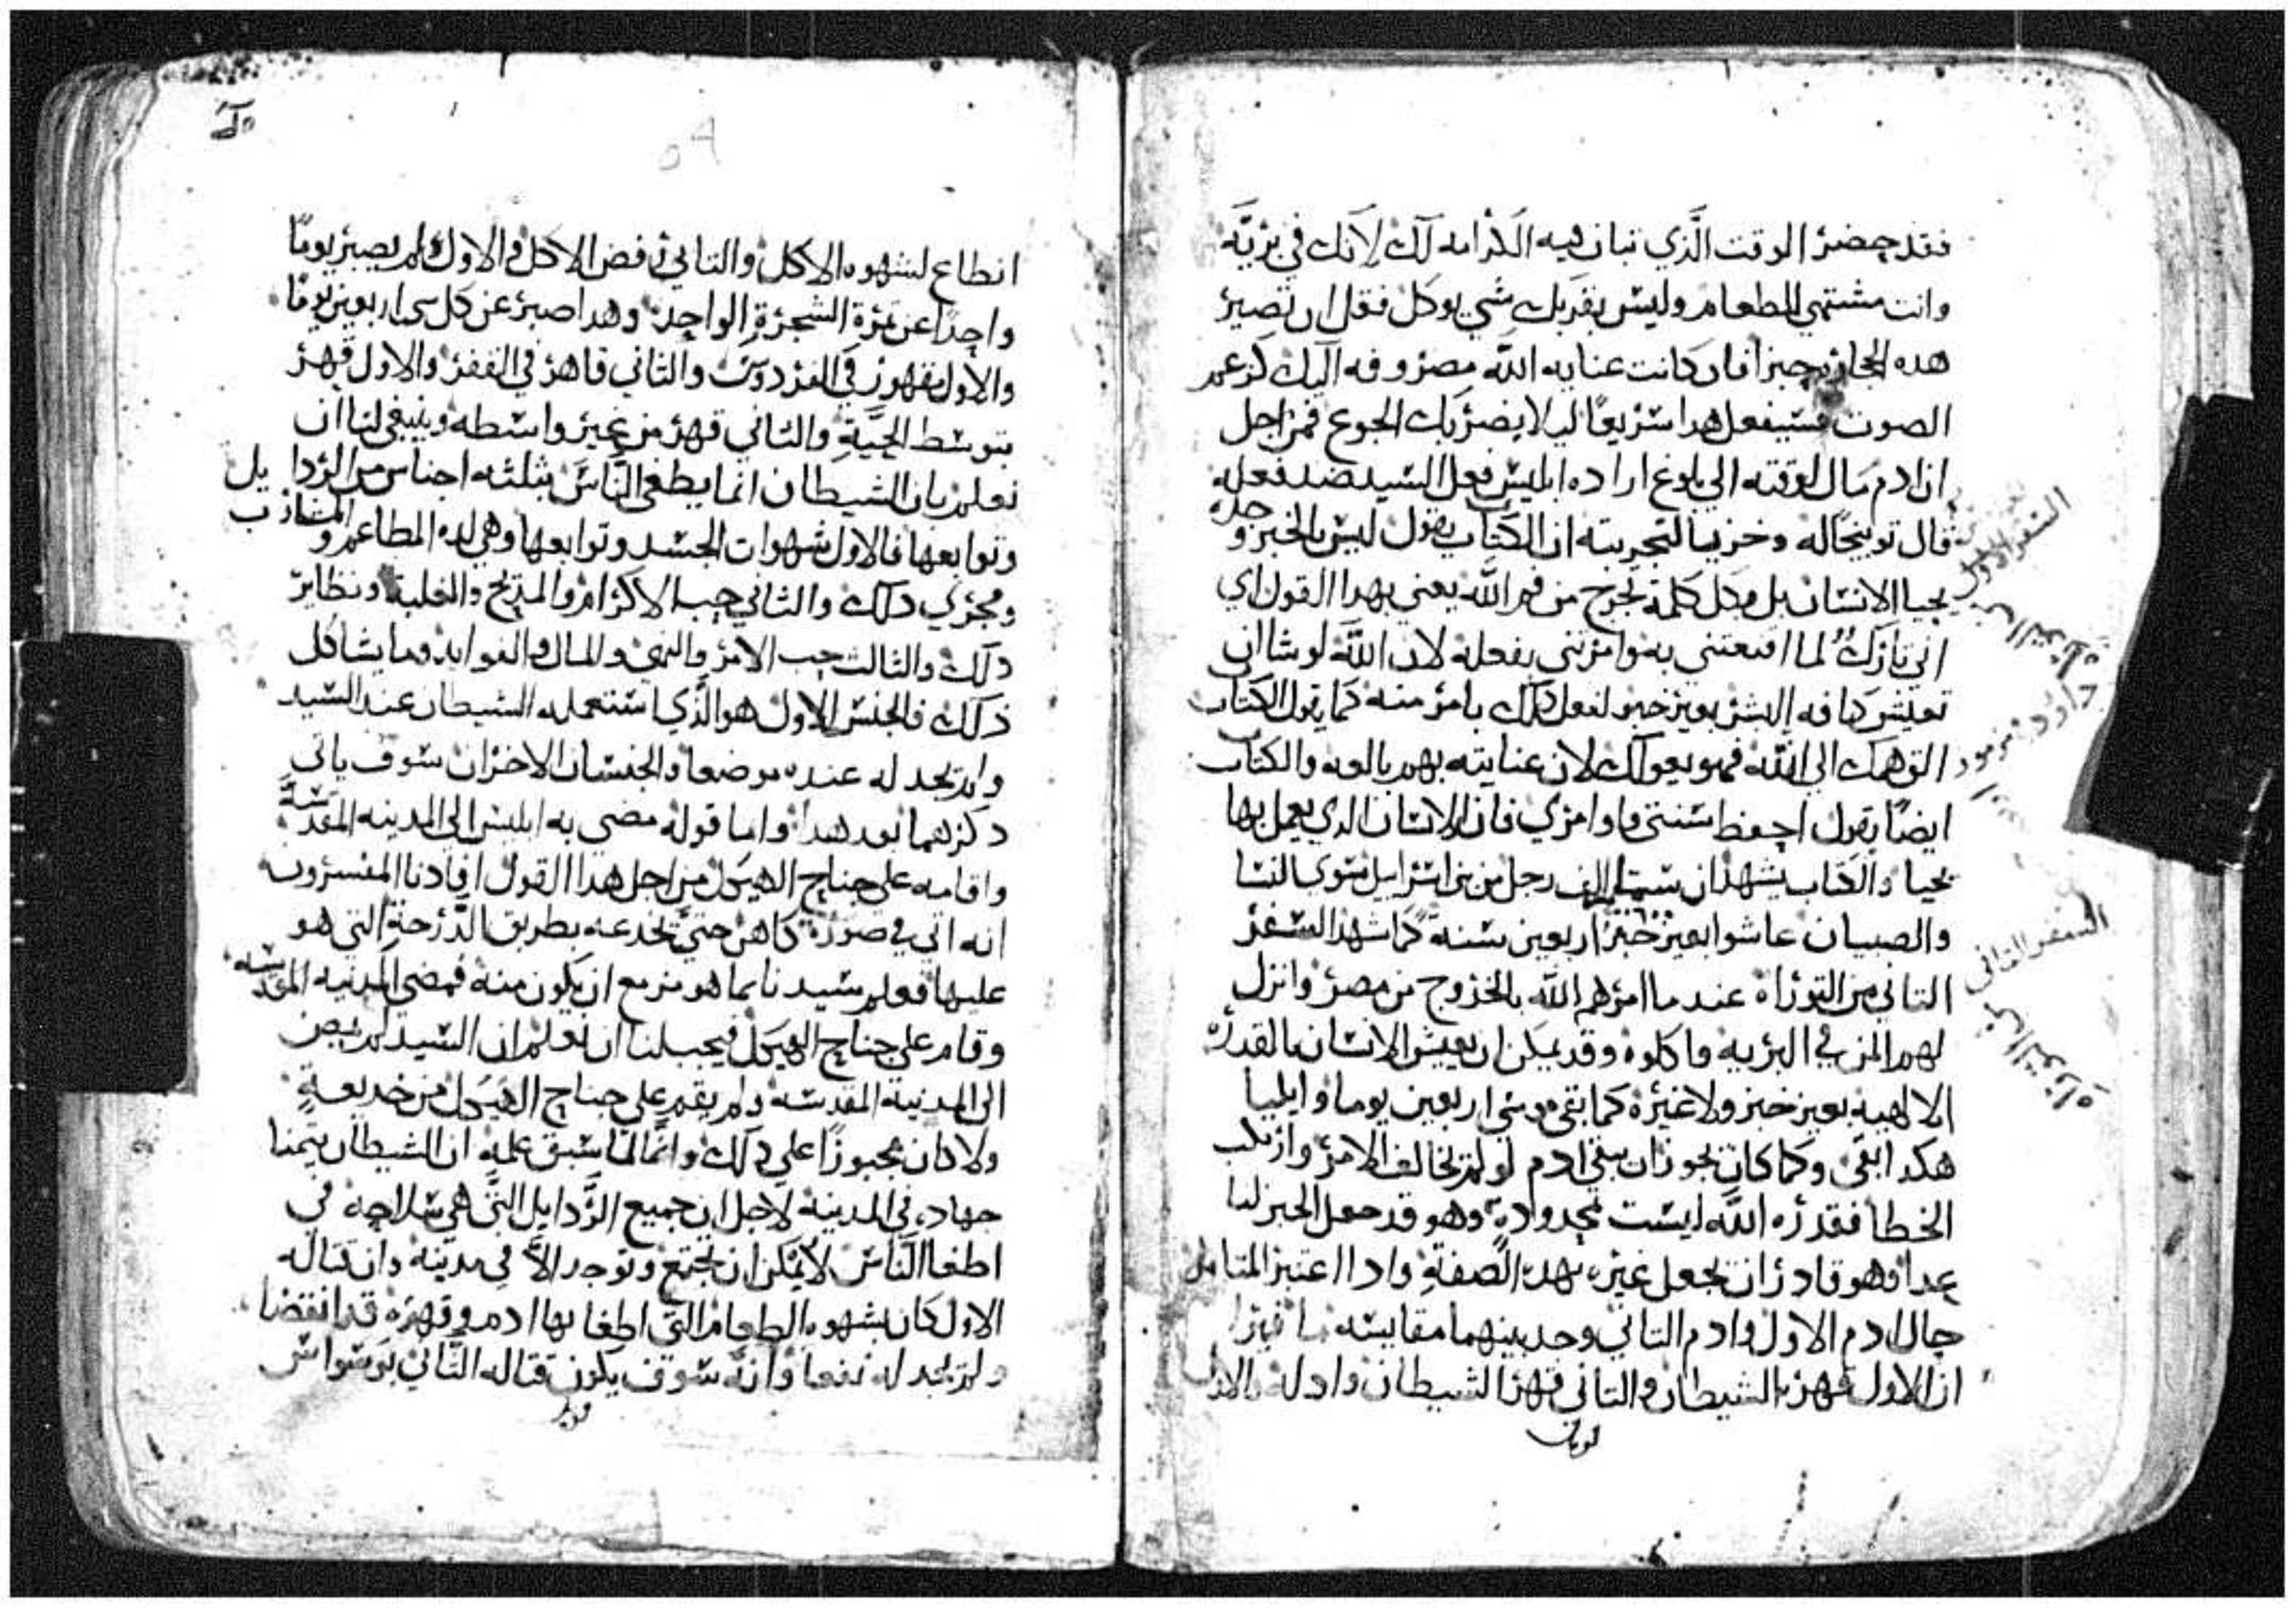 فقد حضر الوقت الذي تبان فيه الكرامه لك لانك في بريّه
وانت مشتهي الطعام وليس بقربك شي يوكل فقل ان تصير
هده الحجاره خبزا فان كانت عنايه الله مصروفه اليك كزعم
الصوت فسيفعل هدا سريعًا ليلا يضر بك الجوع فمن اجل
ان ادم مال لوقته الي بلوغ اراده ابليس فعل السيد ضد فعله
قال توبيخًا له وخزيا لتجربته ان الكتاب يقول ليس بالخبز وحده
يحيا الانسان بل بكل كلمة تخرج من فم الله يعني بهدا القول اي
اني تارك لما اقنعتني به وامرتني بفعله لان الله لو شا ان
تعيش كافه البشر بغير خبز لفعل دلك بامر منه كما يقول الكتاب
الق همك الي الله فهو يعولك لان عنايته بهم بالغه والكتاب
ايضًا يقول احفظ سنتي واوامري فان الانسان الدي يعمل بها
يحيا والكتاب يشهد ان ستمايه الف رجل من بني اسرايل سوي النسا
والصبيان عاشوا بغير خبز اربعين سنة كما شهد السفر
التاني من التوراة عند ما امرهم الله بالخروج من مصر وانزل
لهم المن في البريه فاكلوه وقد يمكن ان يعيش الانسان بالقدرة
الالهيه بغير خبز ولا غيره كما بقي موسي اربعين يوما وايليا
هكدا بقي وكما كان يجوز ان يبقي ادم لو لم يخالف الامر وارتكب
الخطا فقدره الله ليست محدودة وهو قد جعل الخبز لنا
غدا وهو قادر ان يجعل غيره بهده الصفة وادا اعتبر المتامل
حال ادم الاول وادم التاني وجد بينهما مقايسه
ان الاول قهره الشيطان والتاني قهر الشيطان وادله
السفر الاول
من التوراه
داود مزمور
السفر التاني
من التوراه
انطاع لشهوه الاكل والتاني رفض الاكل والاول لم يصبر يومًا
واحدًا عن ثمرة الشجرة الواحده وهدا صبر عن كل شي اربعين يومًا
والاول مقهور في الفردوس والتاني قاهر في القفر والاول قهر
بتوسط الحيّة والتاني قهر من غير واسطه وينبغي لنا ان
نعلم بان الشيطان انما يطغي النّاس بثلثه اجناس من الردايل
وتوابعها فالاول شهوات الجسد وتوابعها وهي لده المطاعم والمشارب
ومجري دلك والثاني حب الاكرام والمديح والغلبه ونظاير
دلك والثالث حب الامر والنهي والمال والفوايد وما يشاكل
ذلك فالجنس الاول هو الّذي استعمله الشيطان عند السيد
ولم يجد له عنده موضعا والجنسان الاخران سوف ياتي
دكرهما بعد هدا واما قوله مضي به ابليس الي المدينه المقدسة
واقامه علي جناح الهيكل من اجل هدا القول افادنا المفسرون
انه اتي في صورة كاهن حتيّ يخدعه بطريق الدّرجة التي هو
عليها فعلم سيدنا بما هو مزمع ان يكون منه فمضي المدينه المقدسه
وقام علي جناح الهيكل فيجب لنا ان نعلم ان السيد لم يمض
الي المدينة المقدسه ولم يقم علي جناح الهيكل من خديعةٍ
ولا كان مجبورًا علي دلك وانّما لمّا سبق علمه ان الشيطان يتمنا
جهاده في المدينة لاجل ان جميع الرّدايل التّي هي سلاحه في
اطغا النّاس لا يمكن ان تجتمع وتوجد الاّ في مدينة وان قتاله
الاول كان بشهوه الطعام التي اطغا بها ادم وقهره قد انقضا
ولم يجد له نفعا وانّه سوف يكون قتاله التّاني بوسواس